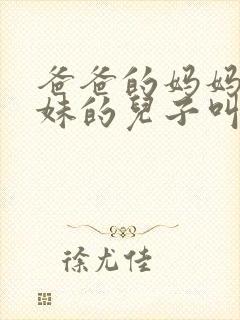 爸爸的妈妈
妹的兒子叫
徐尤佳